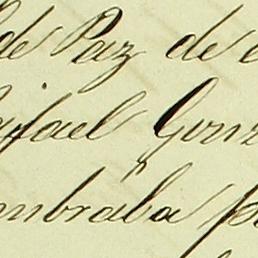 de Paz de
Rafael Gonz
ombraba p